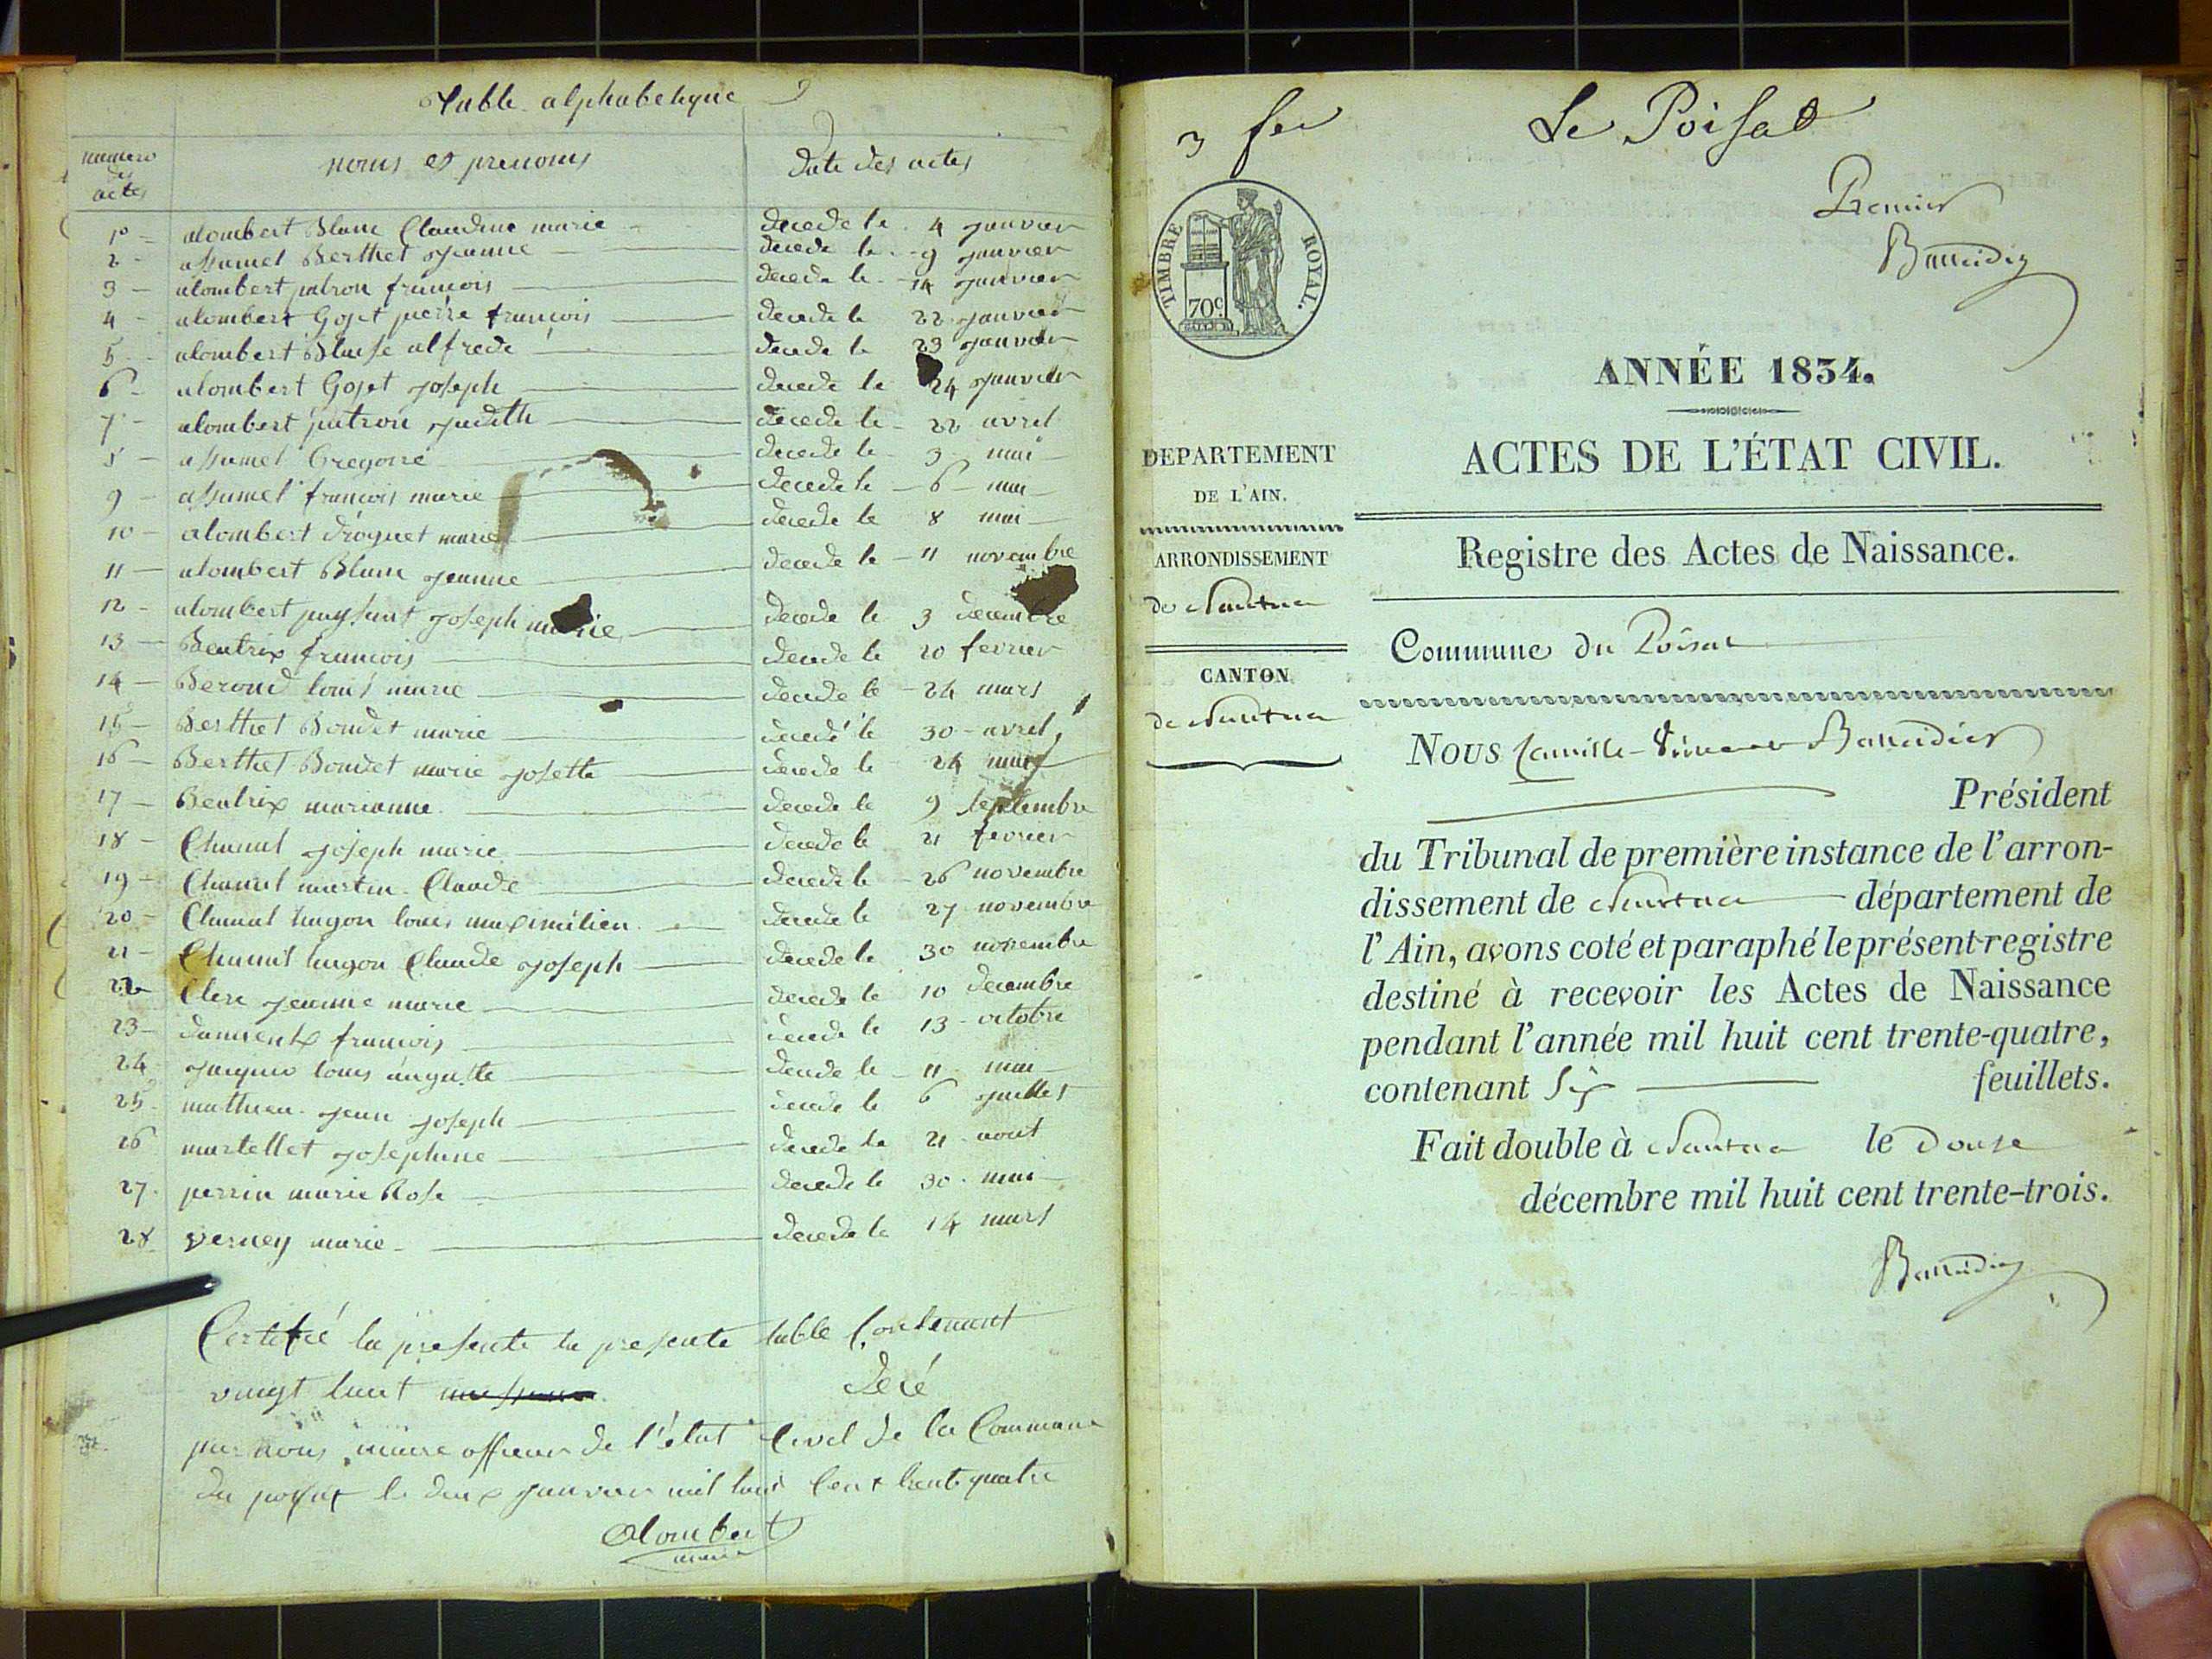 Table alphabetique
numero
des
actes
noms et prenoms
Date des actes
1º - alombert Blanc Claudine marie - decede le 4 janvier
2 - assumel Berthet jeanne - decede le 9 janvier
3 - alombert patron francois - decede le 14 janvier
4 - alombert Gojet pierre francois - decede le 22 janvier
5 - alombert Blaise alfrede - decede le 23 janvier
6 - alombert Gojet joseph - decede le 24 janvier
7 - alombert patron judith - decede le 22 avril
8 - assumel Gregoire - decede le 3 mai
9 - assumel francois marie - decede le 6 mai
10 - alombert droguet marie - decede le 8 mai
11 - alombert Blanc jeanne - decede le 11 novembre
12 - alombert joseph marie - decede le 3 decembre
13 - Beatrix francois - decede le 20 fevrier
14 - Beroud louis marie - decede le 24 mars
15 - Berthet Bondet marie - decedé le 30 avril
16 - Berthet Bondet marie josette - decede le 24
17 - Beatrix marianne - decede le 9 septembre
18 - Chanal joseph marie - decede le 21 fevrier
19 - Chanal martin Claude - decede le 26 novembre
20 - Chanal hugon louis maximilien - decede le 27 novembre
21 - Chanal hugon Claude joseph - decede le 30 novembre
22 Clerc jeanne marie - decede le 10 decembre
23 - francois - decede le 13 octobre
24 - louis auguste - decede le 11 mai
25 - mathieu jean joseph - decede le 6 juillet
26 martellet josephine - decede le 21 aout
27 - perrin marie Rose - decede le 30 mai
28 verney marie - decede le 14 mars
Certifié la presente la presente table Contenant
vingt huit Décé
par nous maire officier de l'état Civil de la Commune
du poisat le deux janvier mil huit Cent trente quatre
Alombert
maire
3 fev Le Poisat
Premier
Baudin
TIMBRE ROYAL.
70c
ANNÉE 1834.
ACTES DE L'ÉTAT CIVIL.
DEPARTEMENT
DE L'AIN.
Registre des Actes de Naissance.
ARRONDISSEMENT
de Nantua
Commune du Poisat
CANTON
de Nantua
Nous Camille-
Président
du Tribunal de première instance de l'arron-
dissement de Nantua département de
l'Ain, avons coté et paraphé le présent registre
destiné à recevoir les Actes de Naissance
pendant l'année mil huit cent trente-quatre,
contenant Six feuillets.
Fait double à Nantua le Douse
décembre mil huit cent trente-trois.